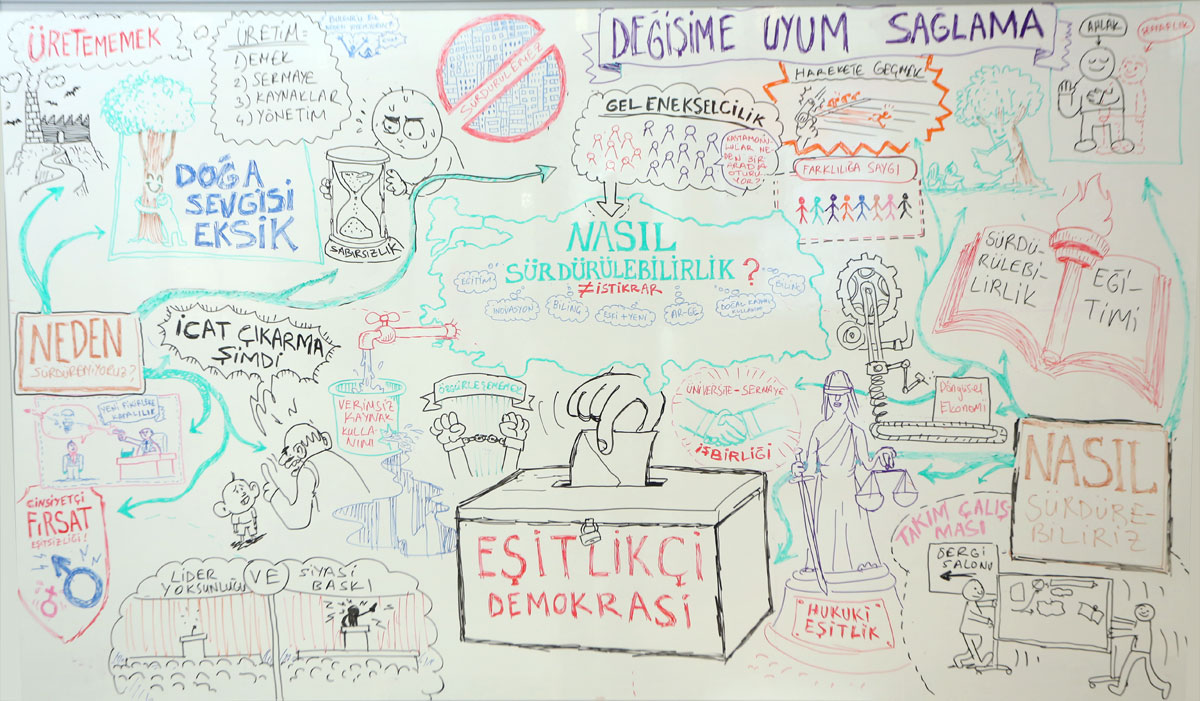 ÜRETEMEMEK
ÜRETİM=
1) EMEK
2) SERMAYE
3) KAYNAKLAR
4) YÖNETİM
SÜRDÜRÜLEMEZ
DEĞİŞİME UYUM SAĞLAMA
AHLAK
ŞEFFAFLIK
HAREKETE GEÇMEK
GELENEKSELCİLİK
KASTAMONU-
LULAR NE
DEN BİR
ARADA
OTURU
YOR?
FARKLILIĞA SAYGI
DOĞA
SEVGİSİ
EKSİK
SABIRSIZLIK
NASIL
SÜRDÜRÜLEBİLİRLİK ?
≠İSTİKRAR
EĞİTİM
İNOVASYON
BİLİNÇ
ESKİ + YENİ
AR-GE
DOĞAL KAYNAK
KULLANIM
BİLİM
SÜRDÜ-
RÜLEBİ-
LİRLİK
EĞİ-
TİMİ
NEDEN
SÜRDÜREMİYORUZ?
İCAT ÇIKARMA
ŞİMDİ
YENİ FİKİRLERE
KAPALILIK
VERİMSİZ
KAYNAK
KULLA-
NIMI
ÖZGÜRLEŞEMEMEK
ÜNİVERSİTE-SERMAYE
İŞBİRLİĞİ
Döngüsel
Ekonomi
NASIL
SÜRDÜRE-
BİLİRİZ
CİNSİYETÇİ
FIRSAT
EŞİTSİZLİĞİ!
LİDER
YOKSUNLUĞU
VE
SİYASİ
BASKI
EŞİTLİKÇİ
DEMOKRASİ
HUKUKİ
EŞİTLİK
TAKIM ÇALIŞ
MASI
SERGİ
SALONU